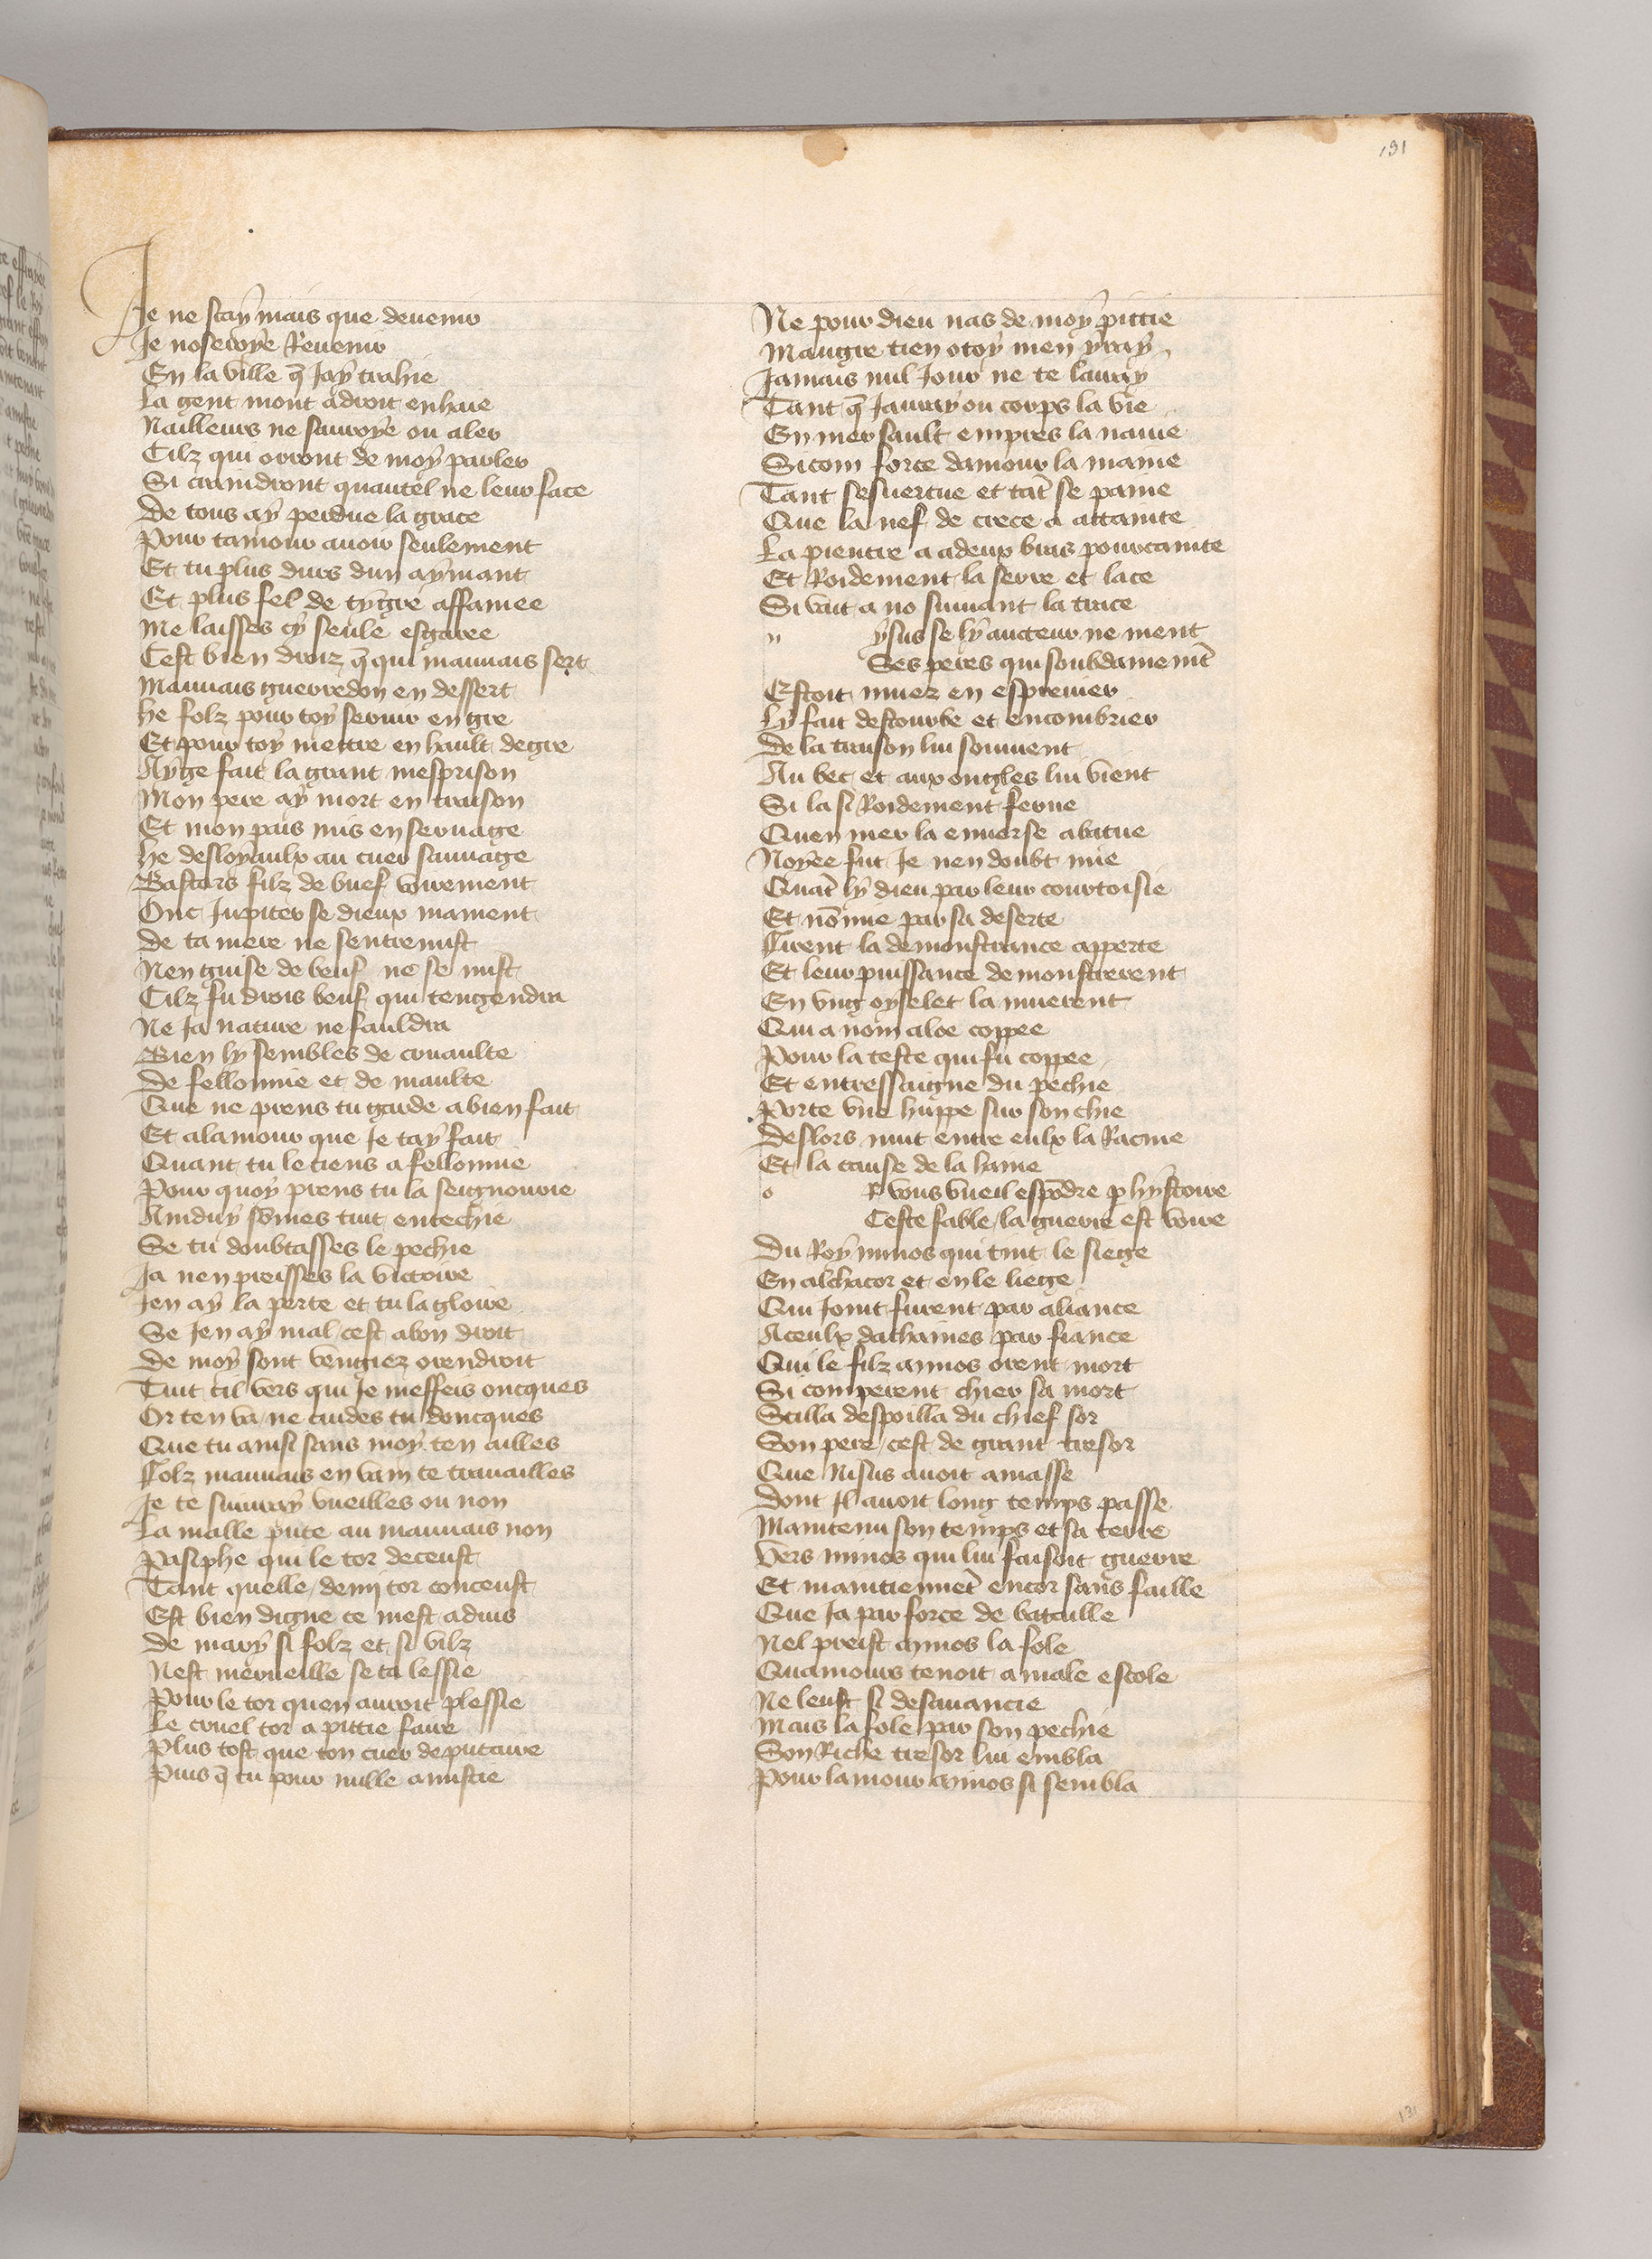 131
Je ne scay mais que devenir
Je noseroye Revenir
En la ville q̄ Jay trahie
La gent mont a droit enhaie
Nailleurs ne sauroye ou aler
Cilz qui orront de moy parler
Si craindront quautel ne leur face
De tous ay perdue la grace
Pour tamour avoir seulement
Et tu plus durs dun aymant
Et plus fel de tygre affamee
Me laisses cy seule esgaree
Cest bien droiz q̄ qui mauvais sert
Mauvais guerredon en dessert
He folz pour toy servir en gre
Et pour toy mettre en hault degre
Ayge fait la grant mesprison
Mon pere ay mort en traison
Et mon pais mis en servage
He desloyaulx au cuer sauvage
Bastars filz de buef voirement
Onc Jupiter se dieux mament
De ta mere ne sentremist
Nen guise de beuf ne se mist
Cilz fu drois beuf qui tengendra
Ne Ja nature ne fauldra
Bien ly sembles de cruaulte
De fellonnie et de maulte
Que ne prens tu garde a bien fait
Et a lamour que Je tay fait
Quant tu le tiens a fellonnie
Pour quoy prens tu la seignourie
Amduy sōmes tuit entechie
Se tu doubtasses le pechie
Ja nen preisses la victoire
Jen ay la perte et tu la gloire
Se Jen ay mal / cest a bon droit
De moy sont vengiez orendroit
Tuit cil vers qui Je meffeis oncques
Or ten va / ne cuides tu doncques
Que tu ainsi sans moy ten ailles
Folz mauvais en vain te travailles
Je te suivray vueilles ou non
La malle pute au mauvais non
Pasiphe qui le tor deceust
Tant quelle / demi tor conceust
Est bien digne ce mest advis
De mary si folz et si vilz
Nest merveille se ta lessie
Pour le tor quen avoit plessie
Le cruel tor a pittie faire
Plus tost que ton cuer deputaire
Puis q̄ tu pour nulle amistie
Ne pour dieu nas de moy pittie
Maugre tien o toy men yray
Jamais nul Jour ne te lairay
Tant q̄ Jauray ou corps la vie
En mer sault empres la navie
Sicom force damour la maine
Tant sesvertue et tāt se paine
Que la nef de crece a attainte
La pientre a a deux bras pourcainte
Et Roidement la serre et lace
Si vait a no suivant la trace
n ysus se ly aucteur ne ment
Ses peres qui soubdainemēt
Estoit muez en esprevier
Ly fait destourbe et encombrier
De la traison lui souvient
Au bec et aux ongles lui vient
Si la si Roidement ferue
Quen mer la enverse abatue
Noyee fut Je nen doubt mie
Quāt ly dieu par leur courtoisie
Et nō mie par sa deserte
Firent la demonstrance apperte
Et leur puissance demonstrerent
En ung oyselet la muerent
Qui a nom aloe coppee
Pour la teste qui fu coppee
Et entressaigne du pechie
Porte une huppe sur son chie
Deslors mut entre eulx la Racine
Et la cause de la haine
o R vous vueil espōdre p hystoire
Ceste fable / la guerre est voire
Du Roy minos qui tint le siege
En alchator et en le liege
Qui Joint furent par aliance
A ceulx dathaines par fiance
Qui le filz minos orent mort
Si comperent chier sa mort
Scilla despoilla du chief sor
Son pere / cest de grant tresor
Que Nisus avoit amasse
Dont Il avoit long temps passe
Maintenu son temps et sa terre
Vers minos qui lui faisoit guerre
Et maintiennet encor sans faille
Que Ja par force de bataille
Nel preist minos la fole
Quamours tenoit a male escole
Ne leust si desavancie
Mais la fole par son pechie
Son Riche tresor lui embla
Pour lamour minos si sembla
131